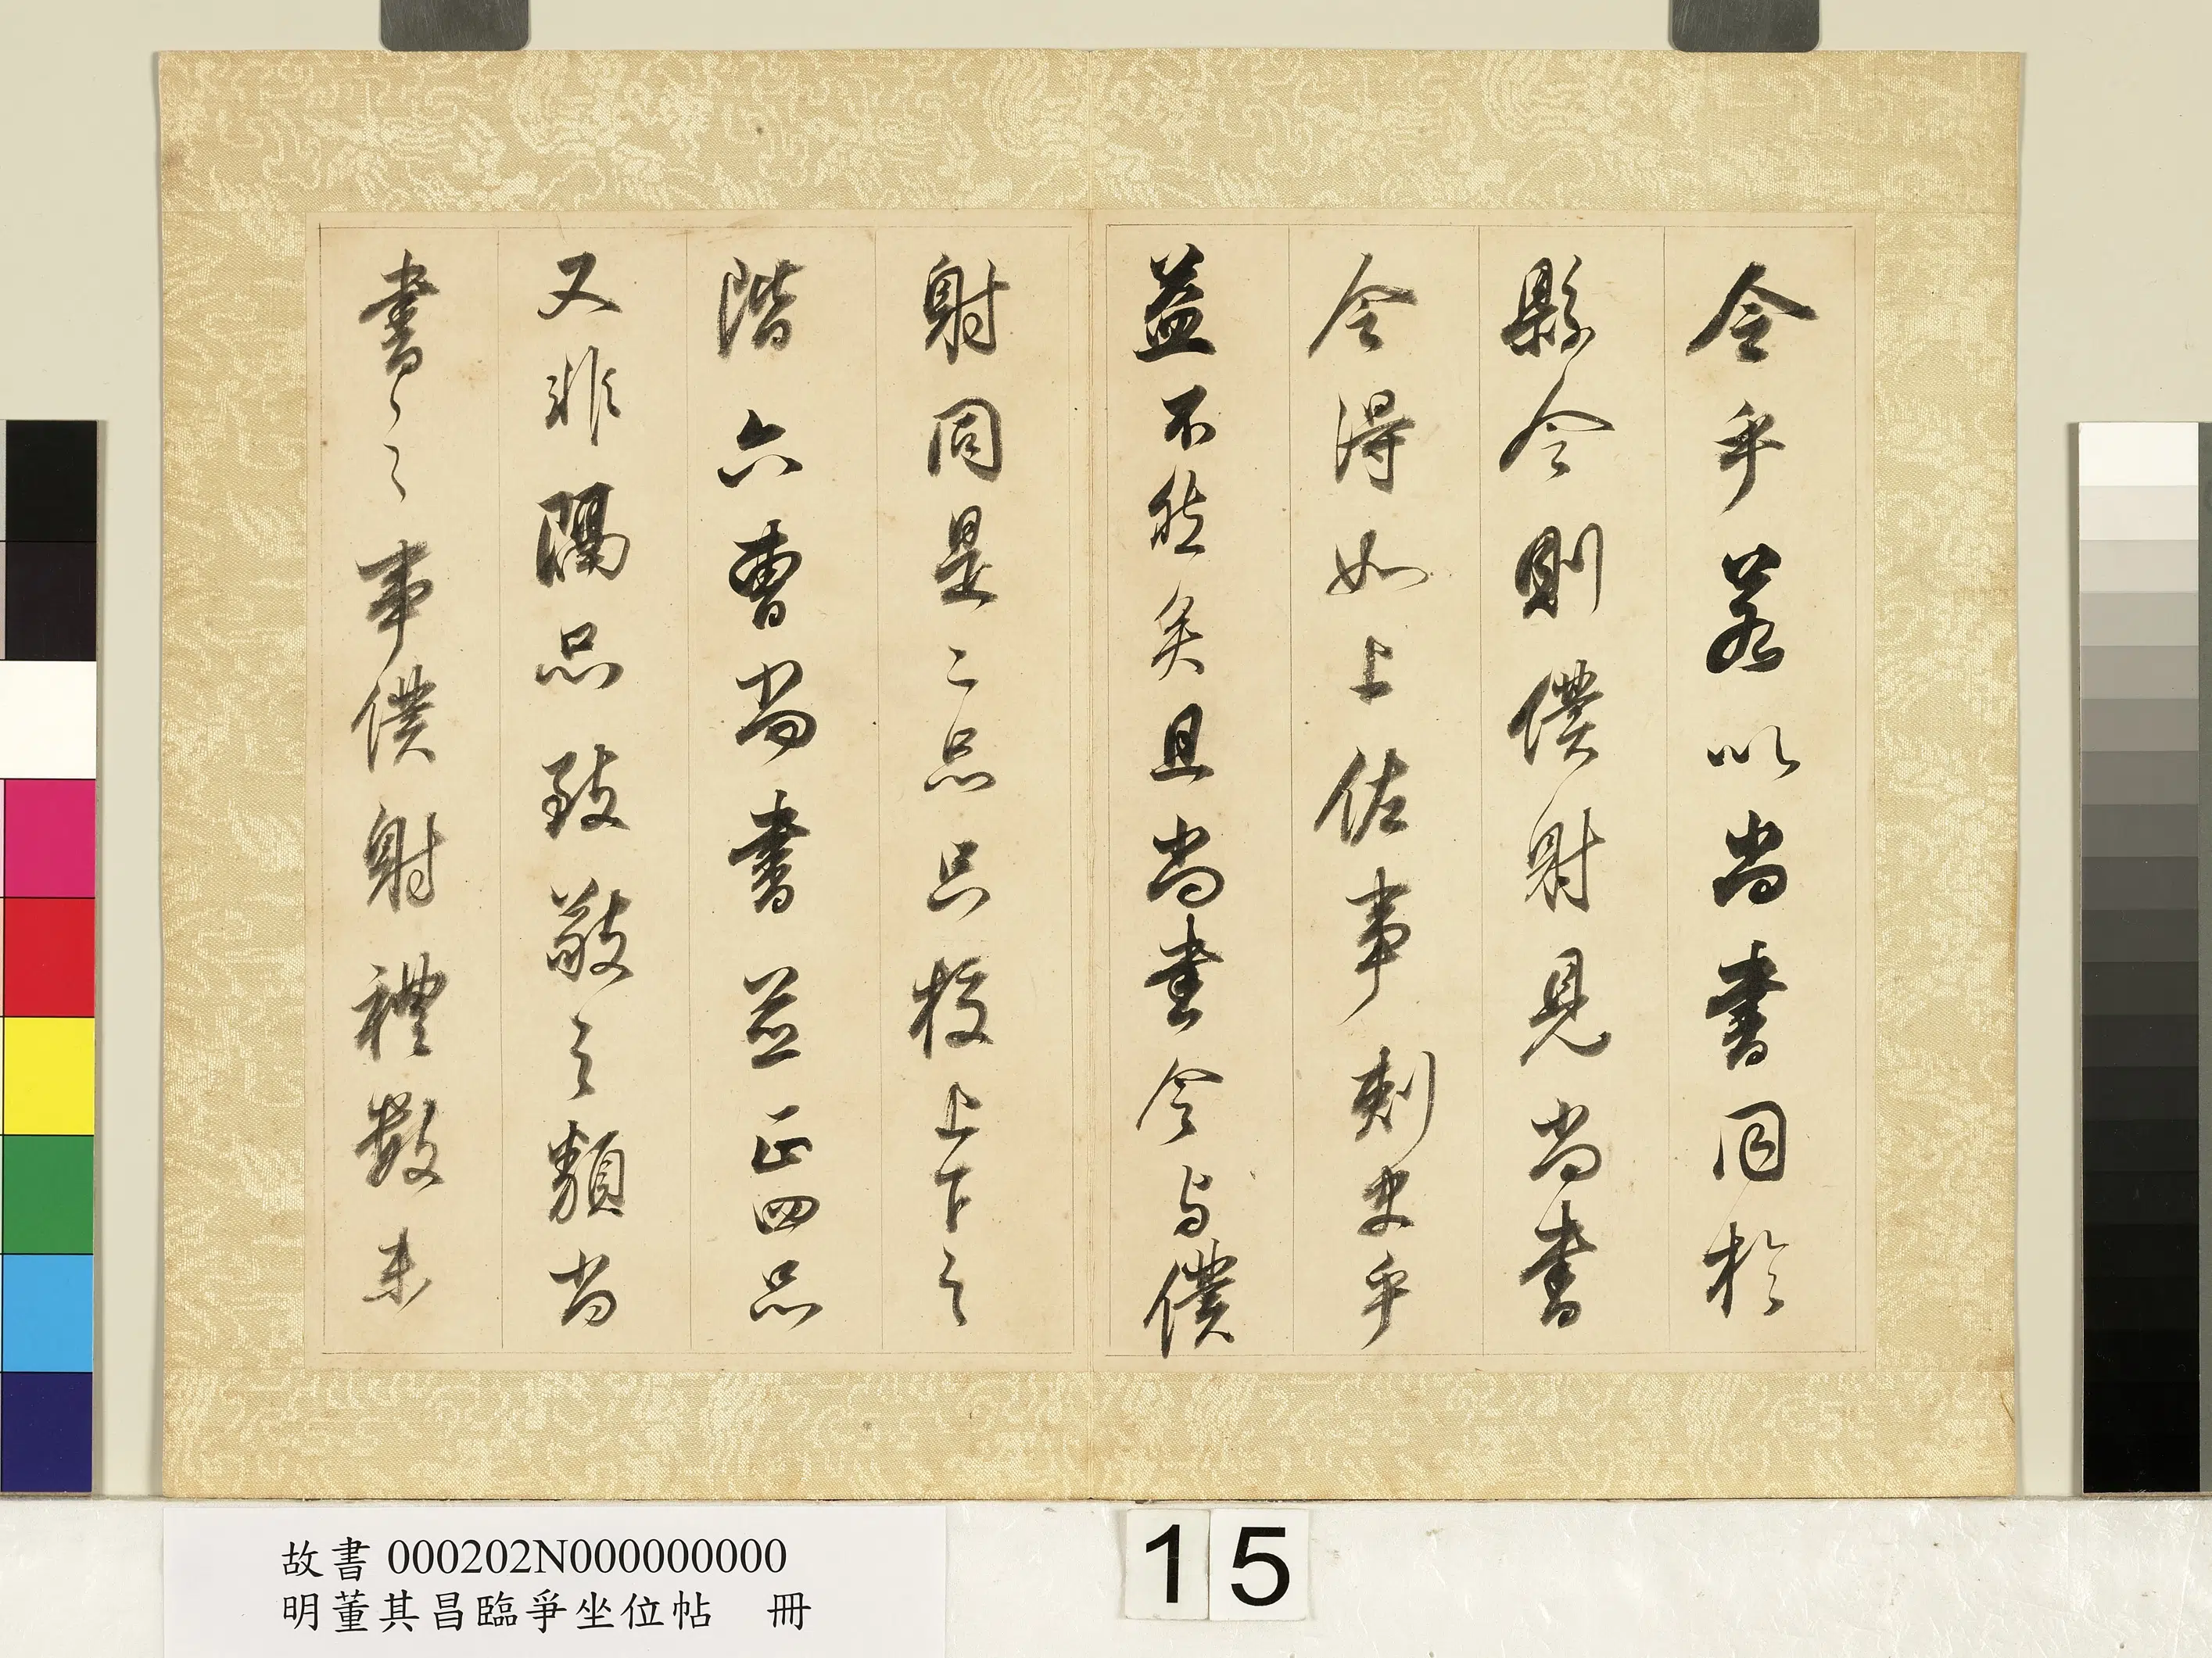 令乎若以尚書同於
縣令則僕射見尚書
令得如上佐事刺史乎
益不然矣且尚書令与僕
射同是二品只校上下之
階六曹尚書並正四品
又非隔品致敬之類尚
書〻之事僕射禮數未
故書000202N000000000
明董其昌臨爭坐位帖 冊
15